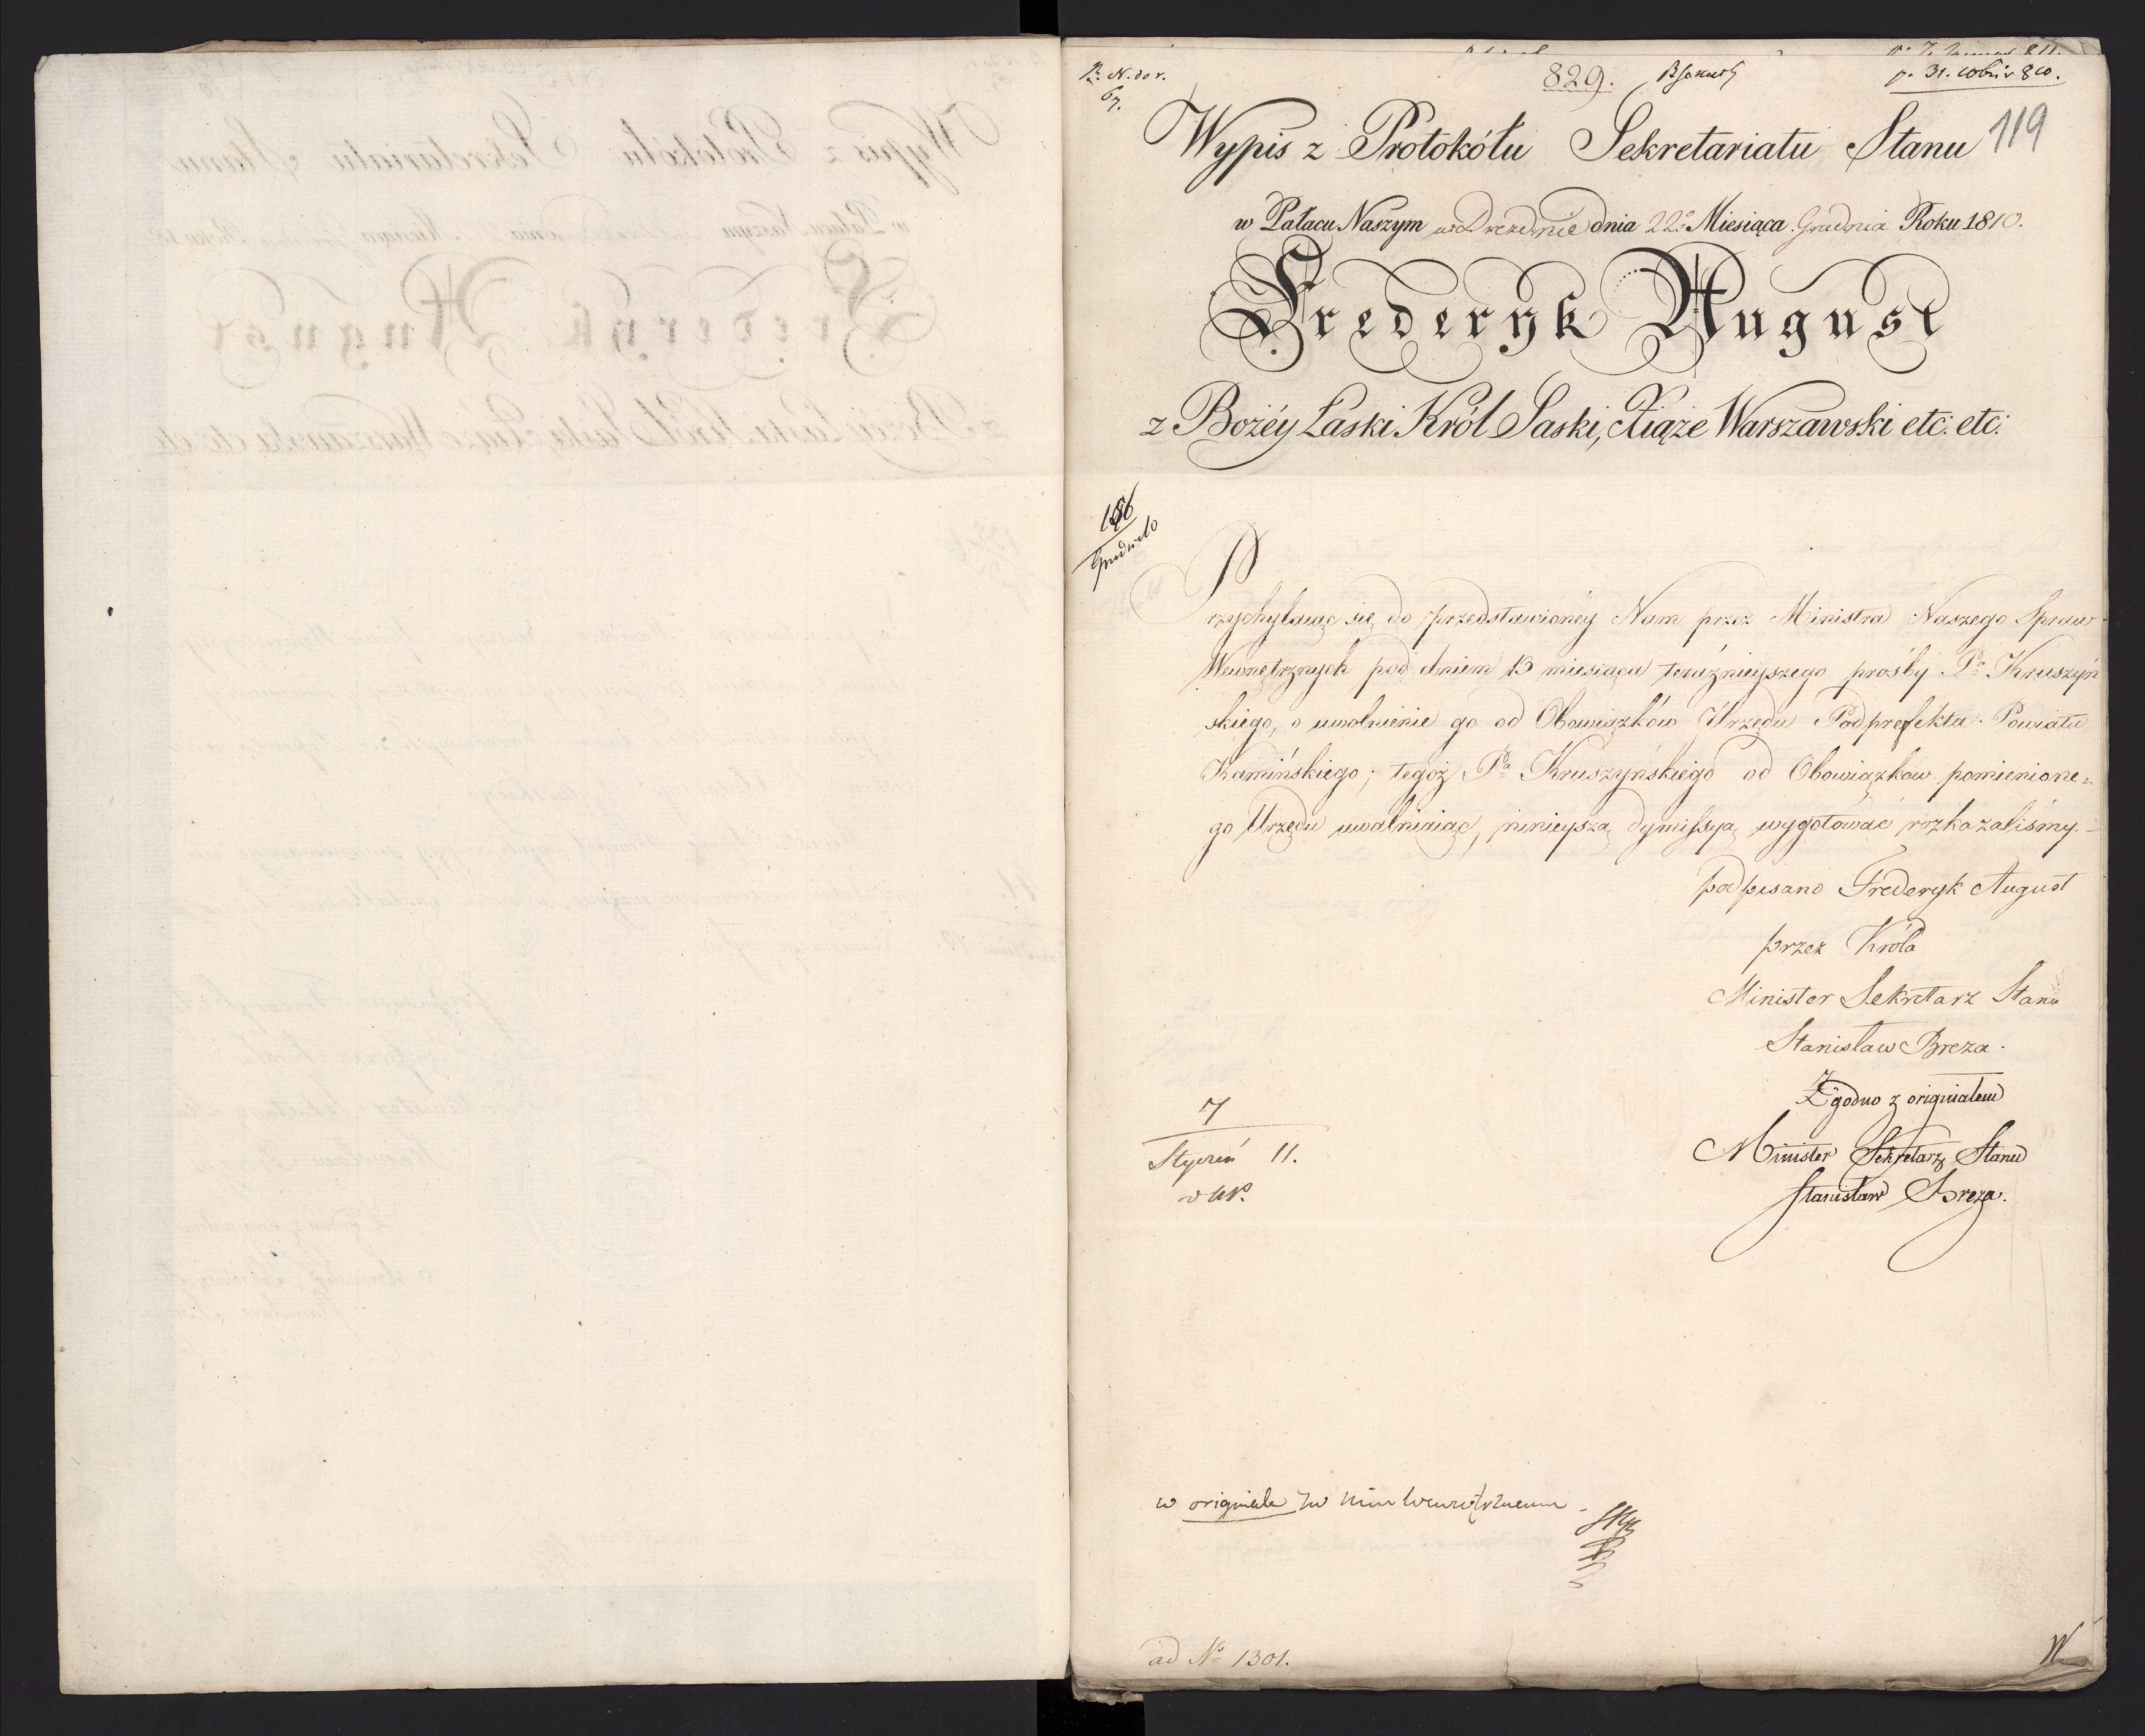 829.
p. 31. Xbris 810.
67.
119
Wypis z Protokółu Sekretariatu Stanu
w Pałacu Naszym w Dreznie dnia 22o Miesiąca Grudnia Roku 1810.
Frederyk August
z Bożéy Łaski Król Saski, Xiąże Warszawski etc: etc:
Przychylaiąc się do przedstawionéy Nam przez Ministra Naszego Spraw
Wewnętrznych pod dniem 13 miesiąca teraźnieyszego prośby Pa Kruszyń
skiego, o uwolnienie go od Obowiązków Urzędu Podprefekta Powiatu
Kamińskiego; tegoż Pa Kruszyńskiego od Obowiązków pomienione=
go Urzędu uwalniaiąc, ninieyszą dymissyą wygotować rozkazaliśmy.
podpisano Frederyk August
przez Króla
Minister Sekretarz Stanu
Stanisław Breza.
Zgodno z originałem
Minister Sekretarz Stanu
Stanisław Breza.
7
Styczeń 11.
w originale
ad No 1301.